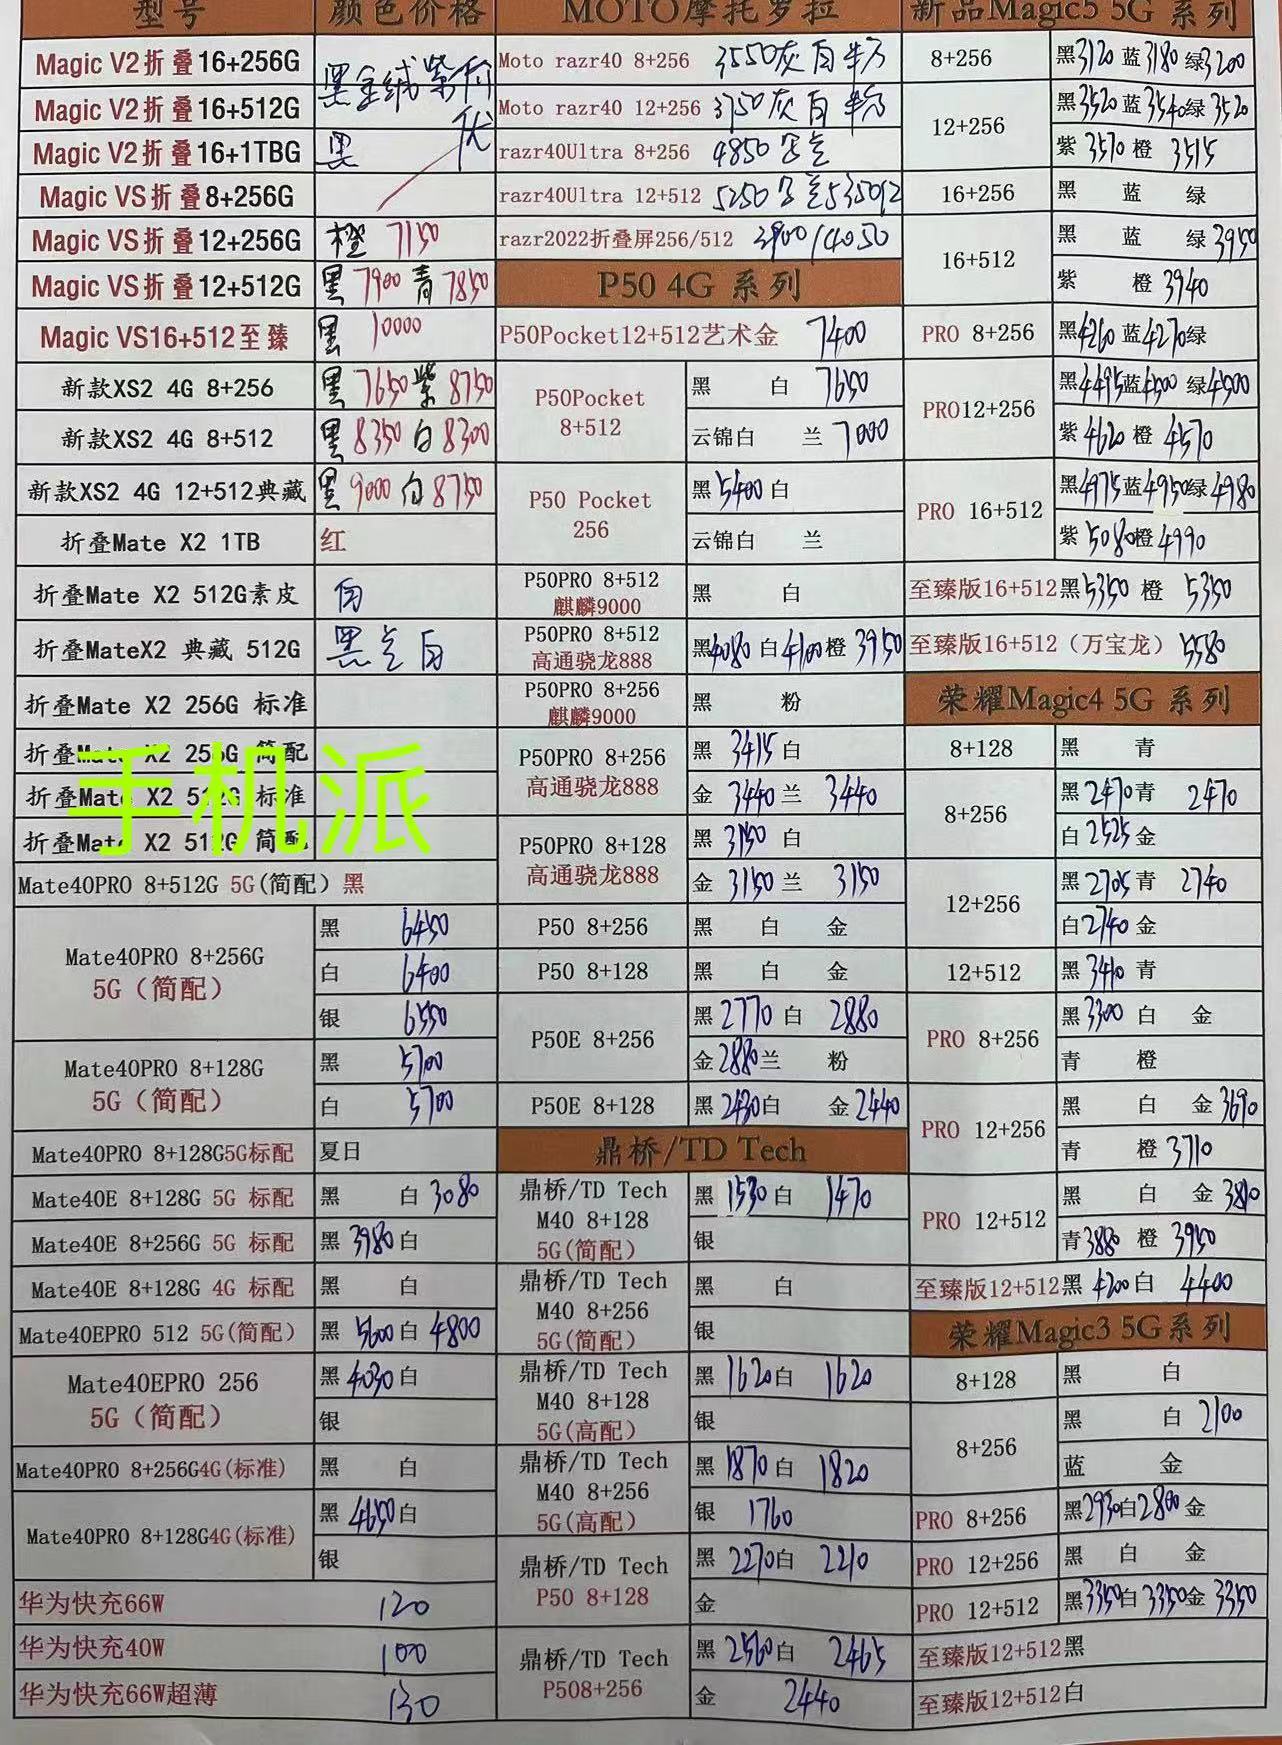 型号 颜色价格
Magic V2折叠16+256G 黑金绒紫
Magic V2折叠16+512G
Magic V2折叠16+1TBG 黑
Magic VS折叠8+256G
Magic VS折叠12+256G 橙 7150
Magic VS折叠12+512G 黑 7900 青 7850
Magic VS16+512至臻 黑 10000
新款XS2 4G 8+256 黑 7650 紫 8750
新款XS2 4G 8+512 黑 8350 白 8300
新款XS2 4G 12+512典藏 黑 9000 白 8750
折叠Mate X2 1TB 红
折叠Mate X2 512G素皮
折叠MateX2 典藏 512G 黑 白
折叠Mate X2 256G 标准
折叠Mate X2 256G 简配
折叠Mate X2 512G 标准
手机派
折叠Mate X2 512G 简配
Mate40PRO 8+512G 5G(简配) 黑
Mate40PRO 8+256G
5G（简配）
黑 6450
白 6400
银 6550
Mate40PRO 8+128G
5G（简配）
黑 5700
白 5700
Mate40PRO 8+128G5G标配 夏日
Mate40E 8+128G 5G 标配 黑 白 3080
Mate40E 8+256G 5G 标配 黑 3980 白
Mate40E 8+128G 4G 标配 黑 白
Mate40EPRO 512 5G(简配) 黑 5600 白 4800
Mate40EPRO 256
5G（简配）
黑 4030 白
银
Mate40PRO 8+256G4G(标准) 黑 白
Mate40PRO 8+128G4G(标准)
黑 4650 白
银
华为快充66W 120
华为快充40W 100
华为快充66W超薄 130
MOTO摩托罗拉
Moto razr40 8+256 3550灰白
Moto razr40 12+256 3750灰白
razr40Ultra 8+256 4850
razr40Ultra 12+512 5250
razr2022折叠屏256/512 3900/4050
P50 4G 系列
P50Pocket12+512艺术金 7400
P50Pocket
8+512
黑 白 7650
云锦白 兰 7000
P50 Pocket
256
黑 5400 白
云锦白 兰
P50PRO 8+512
麒麟9000
黑 白
P50PRO 8+512
高通骁龙888
黑 4080 白 4100 橙 3950
P50PRO 8+256
麒麟9000
黑 粉
P50PRO 8+256
高通骁龙888
黑 3415 白
金 3440 兰 3440
P50PRO 8+128
高通骁龙888
黑 3150 白
金 3150 兰 3150
P50 8+256 黑 白 金
P50 8+128 黑 白 金
P50E 8+256
黑 2770 白 2880
金 2880 兰 粉
P50E 8+128 黑 2430 白 金 2440
鼎桥/TD Tech
鼎桥/TD Tech
M40 8+128
5G(简配)
黑 1530 白 1470
银
鼎桥/TD Tech
M40 8+256
5G(简配)
黑 白
银
鼎桥/TD Tech
M40 8+128
5G(高配)
黑 1620 白 1620
银
鼎桥/TD Tech
M40 8+256
5G(高配)
黑 1870 白 1820
银 1760
鼎桥/TD Tech
P50 8+128
黑 2270 白 2210
金
鼎桥/TD Tech
P508+256
黑 2560 白 2465
金 2440
新品Magic5 5G 系列
8+256 黑 3120 蓝 3180 绿 3200
12+256
黑 3520 蓝 3540 绿 3520
紫 3570 橙 3515
16+256 黑 蓝 绿
16+512
黑 蓝 绿 3950
紫 橙 3940
PRO 8+256 黑 4260 蓝 4270 绿
PRO12+256
黑 4495 蓝 4500 绿 4500
紫 4620 橙 4570
PRO 16+512
黑 4975 蓝 4950 绿 4980
紫 5080 橙 4990
至臻版16+512 黑 5350 橙 5350
至臻版16+512（万宝龙） 5580
荣耀Magic4 5G 系列
8+128 黑 青
8+256
黑 2470 青 2470
白 2525 金
12+256
黑 2705 青 2740
白 2740 金
12+512 黑 3410 青
PRO 8+256
黑 3300 白 金
青 橙
PRO 12+256
黑 白 金 3690
青 橙 3710
PRO 12+512
黑 白 金 3810
青 3880 橙 3950
至臻版12+512 黑 4200 白 4400
荣耀Magic3 5G系列
8+128 黑 白
8+256
黑 白 2100
蓝 金
PRO 8+256 黑 2930 白 2800 金
PRO 12+256 黑 白 金
PRO 12+512 黑 3350 白 3350 金 3350
至臻版12+512黑
至臻版12+512白